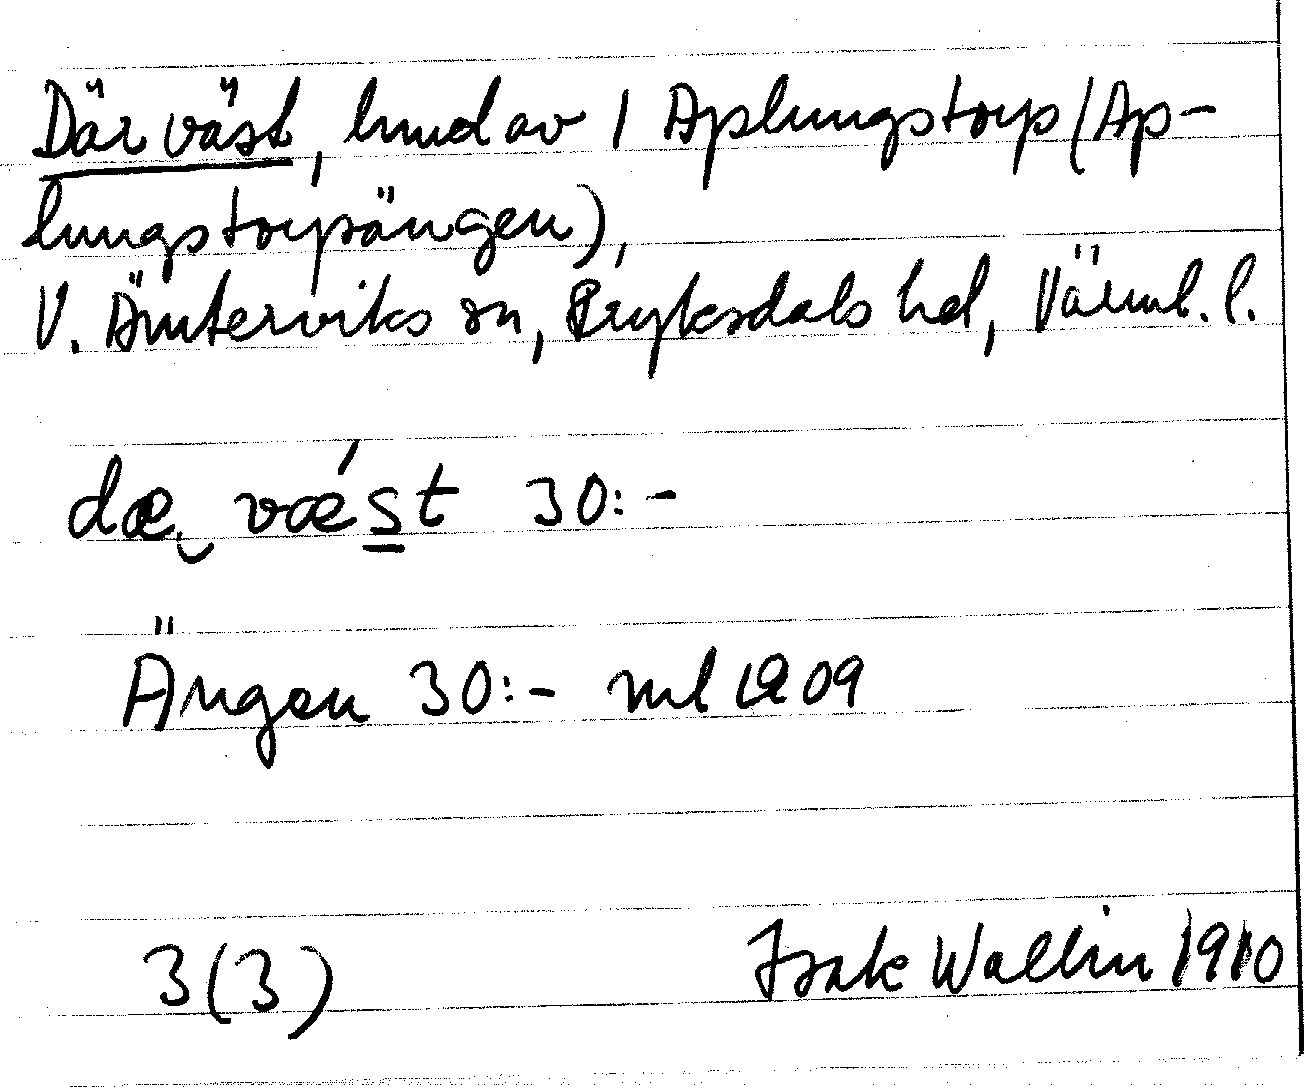 Där väst, hmd av 1 Aplungstorp (Ap-
lungstorpsängen),
V. Ämterviks sn, Fryksdals hd, Värml. l.
dæ væ´st 30:-
Ängen 30:- ml 1909
3(3) Isak Wallin 1910